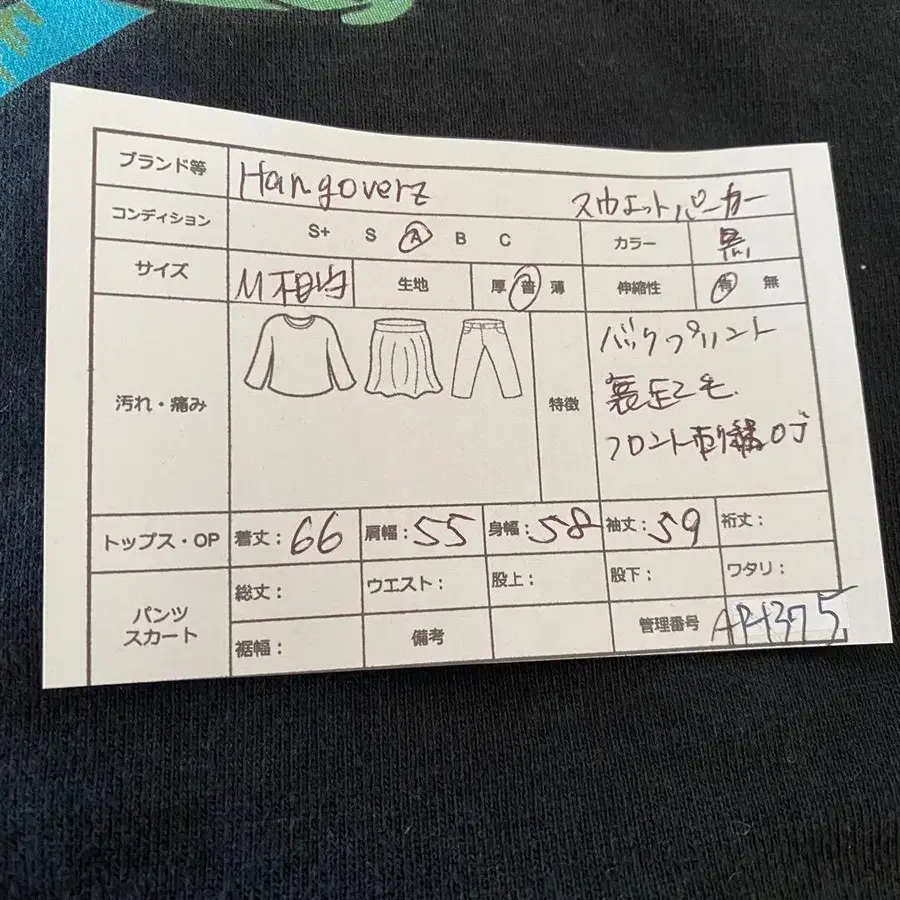 ブランド等 Hangoverz スウエットパーカー
コンディション S+ S A B C カラー 黒
サイズ M相当 生地 厚 普 薄 伸縮性 有 無
汚れ・痛み 特徴
バックプリント
裏起毛
フロント刺繍ロゴ
トップス・OP 着丈：66 肩幅：55 身幅：58 袖丈：59 裄丈：
パンツ
スカート
総丈： ウエスト： 股上： 股下： ワタリ：
裾幅： 備考 管理番号